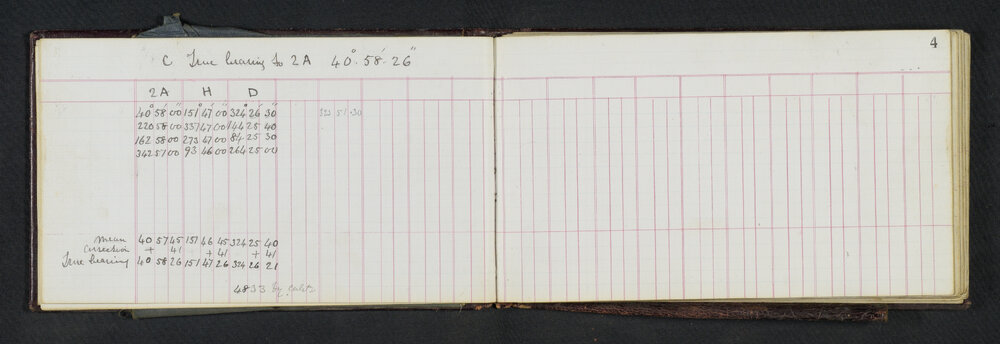 4
C True bearing to 2A 40° 58' 26"
2A H D
40° 58' 00" 151° 47' 00" 324° 26' 30"
220 58 00 331 47 00 144 25 40
162 58 00 273 47 00 84 25 30
342 57 00 93 46 00 264 25 00
323 51 30
mean 40 57 45 151 46 45 324 25 40
correction + 41 + 41 + 41
True bearing 40 58 26 151 47 26 324 26 21
4833